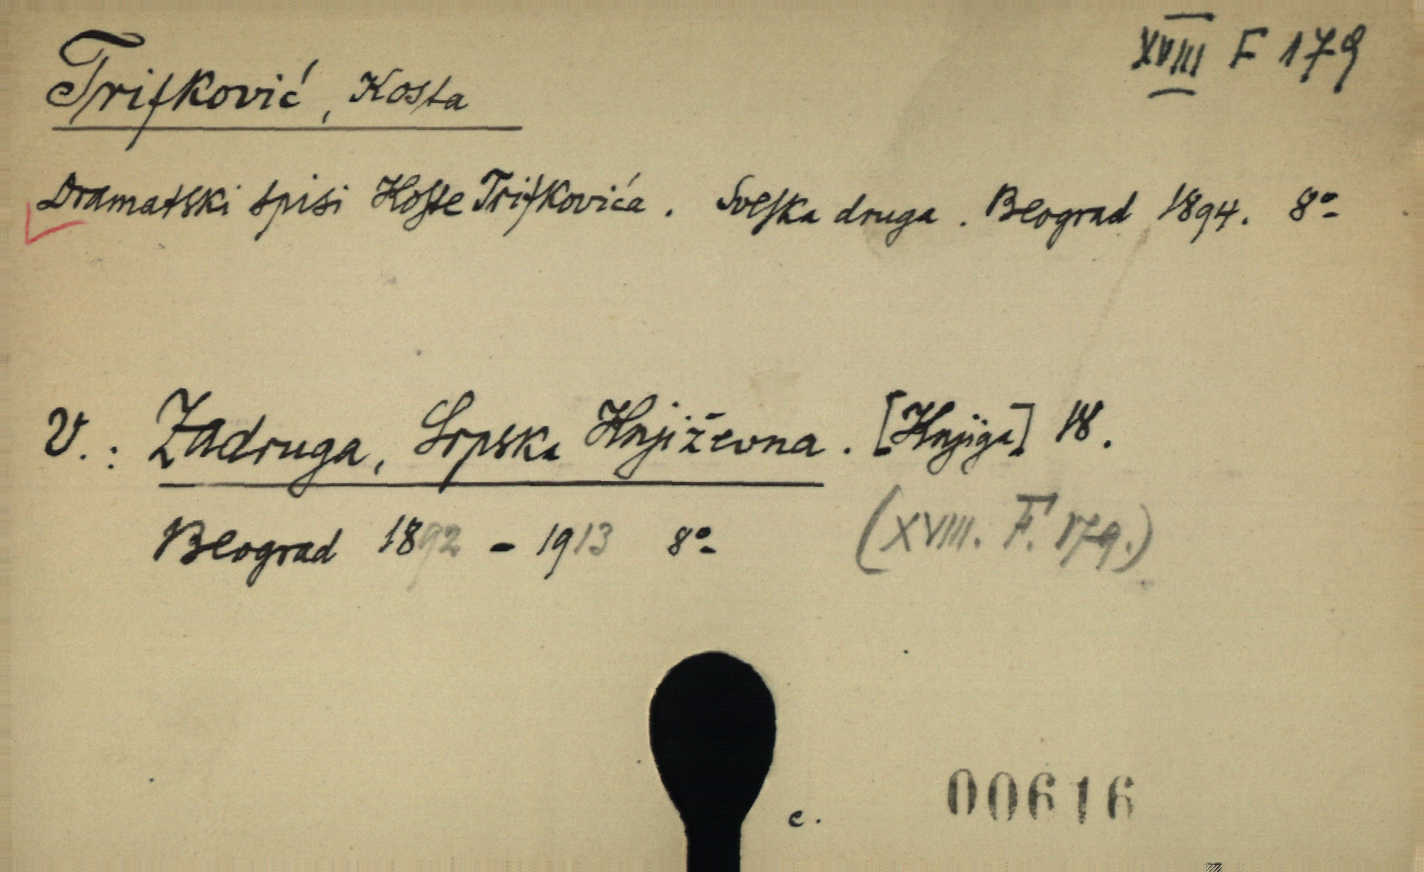 XVIII F 179
Trifković, Kosta
Dramatski spisi Koste Trifkovića. Sveska druga. Beograd 1894. 8º
V.: Zadruga, Srpska Književna. [Knjiga] 18.
Beograd 1892 - 1913 8º
(XVIII. F. 179.)
c.
00616